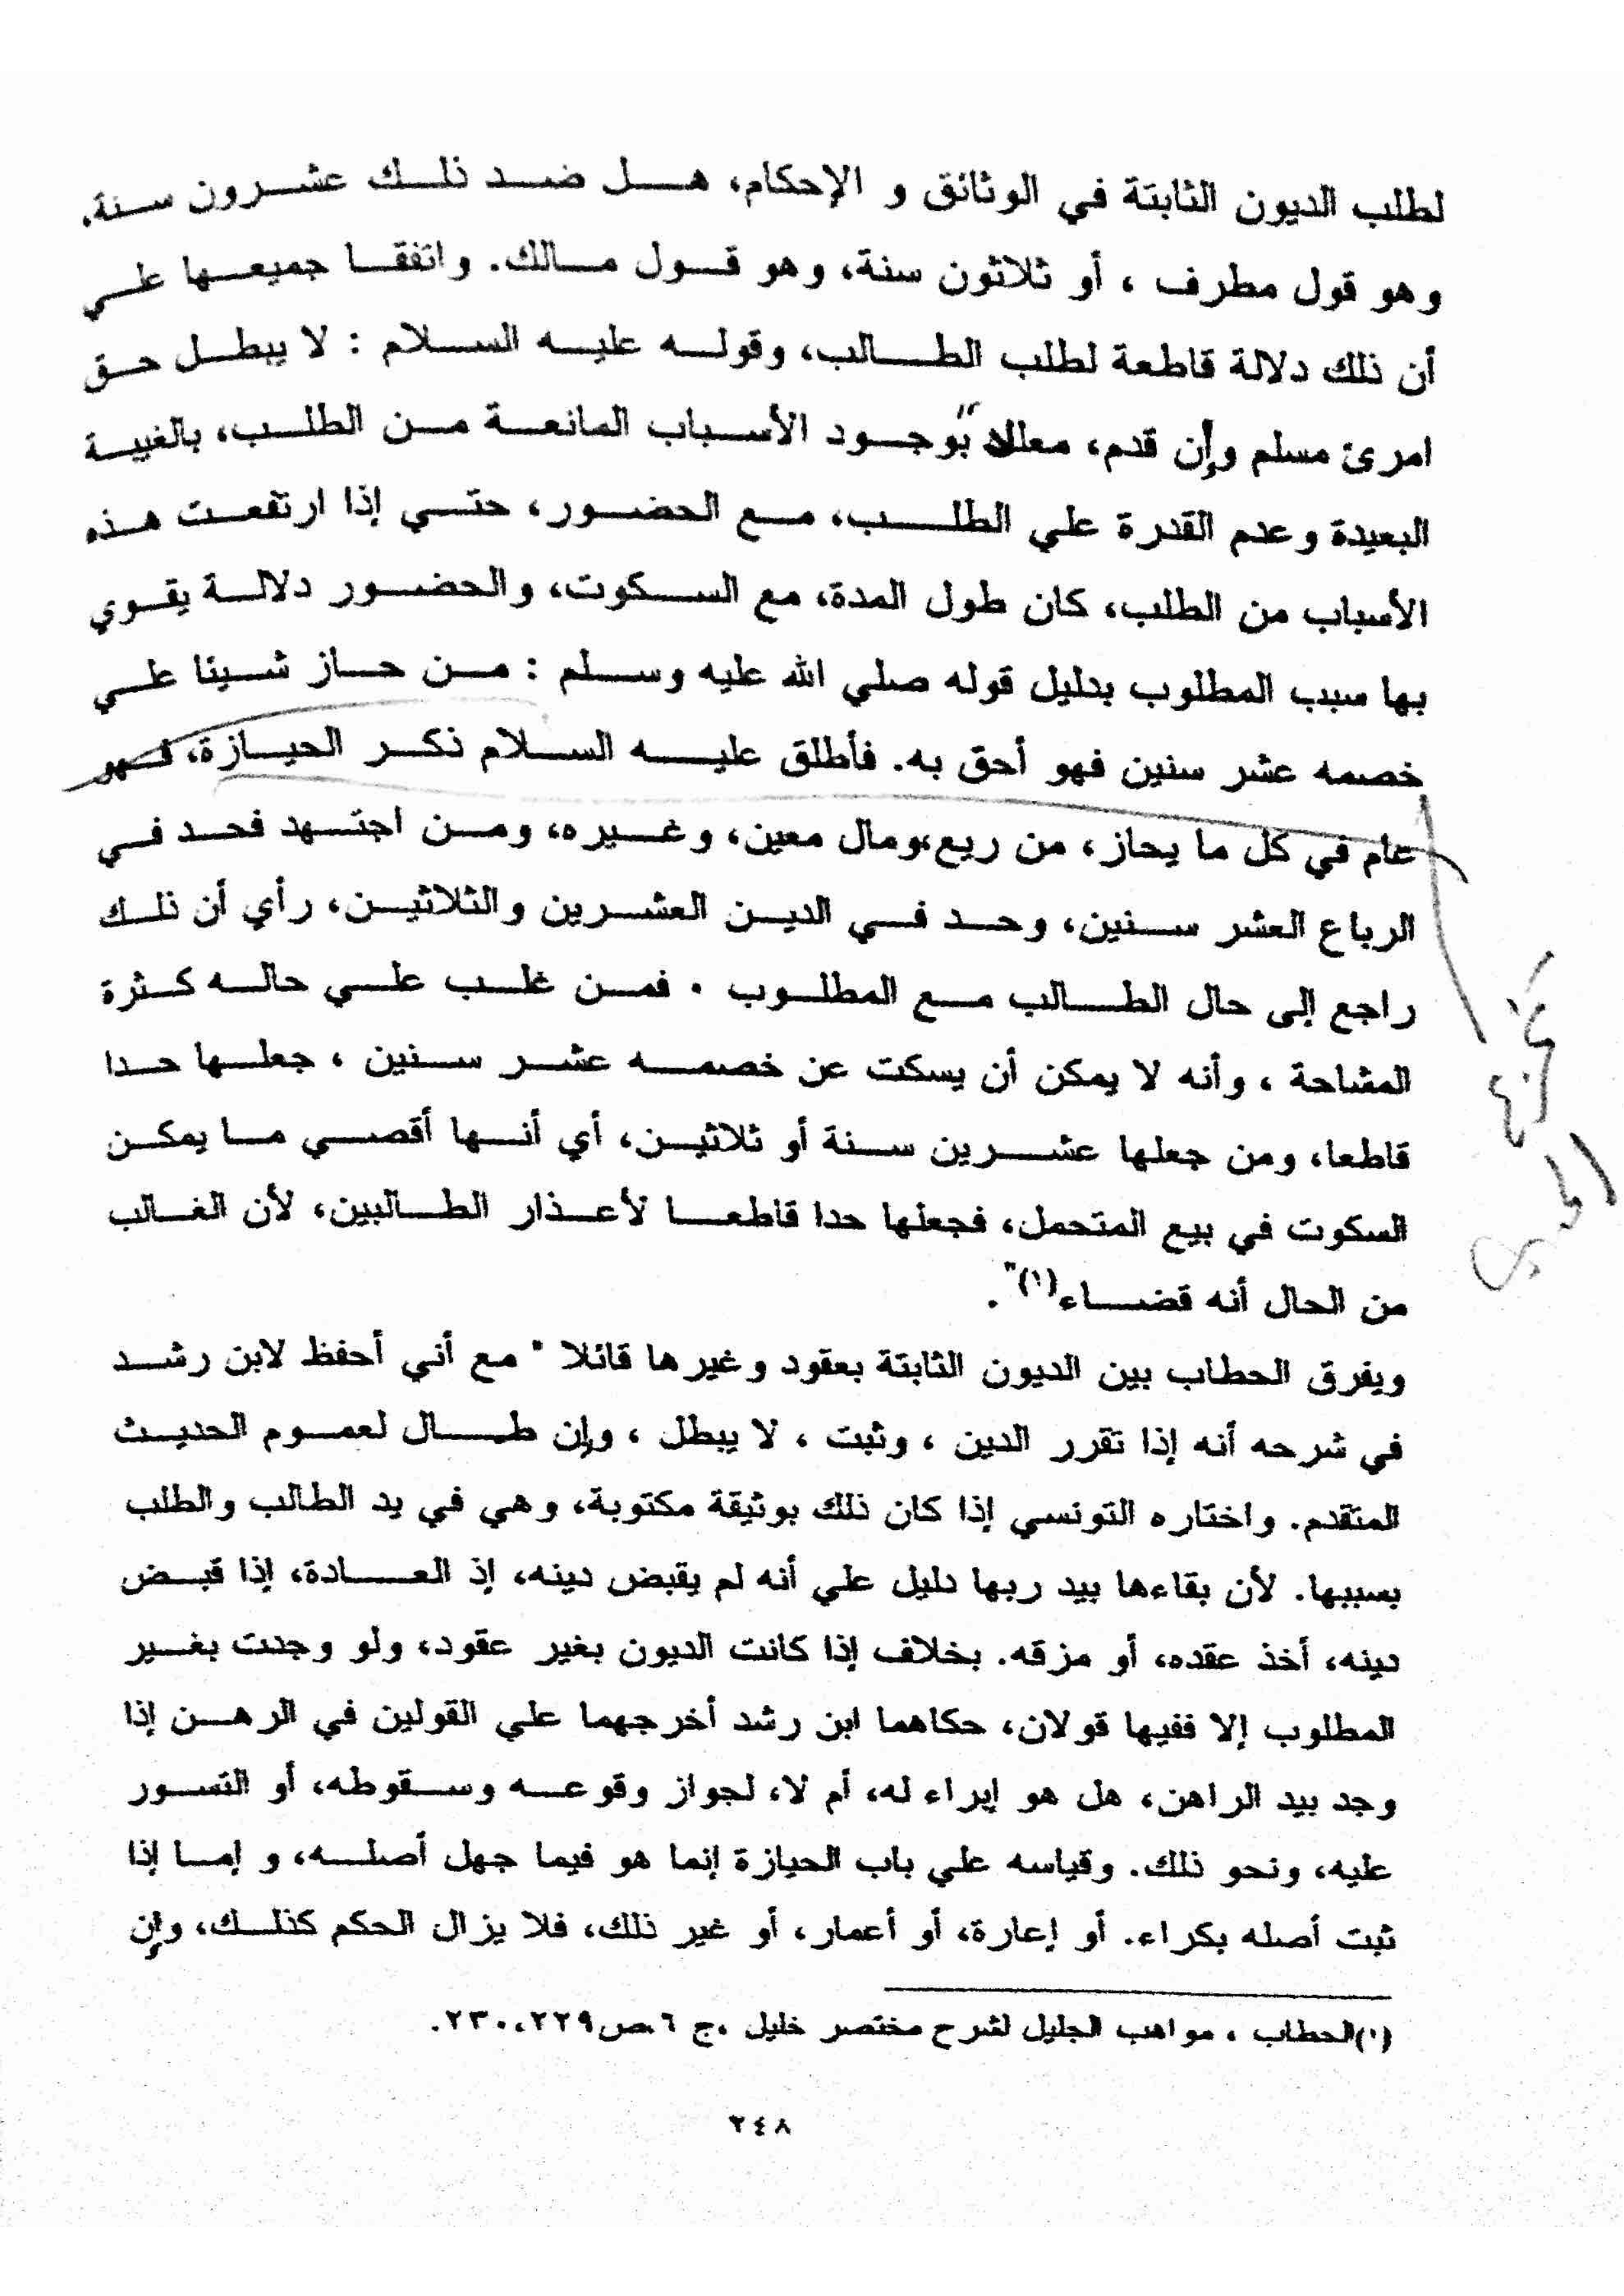 لطلب الديون الثابتة في الوثائق و الإحكام، هل ضد ذلك عشرون سنة،
وهو قول مطرف ، أو ثلاثون سنة، وهو قول مالك. واتفقا جميعها علي
أن ذلك دلالة قاطعة لطلب الطالب، وقوله عليه السلام : لا يبطل حق
امرئ مسلم وإن قدم، معللا بوجود الأسباب المانعة من الطلب، بالغيبة
البعيدة وعدم القدرة علي الطلب، مع الحضور، حتي إذا ارتفعت هذه
الأسباب من الطلب، كان طول المدة، مع السكوت، والحضور دلالة يقوي
بها سبب المطلوب بدليل قوله صلي الله عليه وسلم : من حاز شيئا علي
خصمه عشر سنين فهو أحق به. فأطلق عليه السلام ذكر الحيازة، فهو
عام في كل ما يحاز، من ربع،ومال معين، وغيره، ومن اجتهد فحد في
الرباع العشر سنين، وحد في الدين العشرين والثلاثين، رأي أن ذلك
راجع إلى حال الطالب مع المطلوب . فمن غلب علي حاله كثرة
المشاحة ، وأنه لا يمكن أن يسكت عن خصمه عشر سنين ، جعلها حدا
قاطعا، ومن جعلها عشرين سنة أو ثلاثين، أي أنها أقصي ما يمكن
السكوت في بيع المتحمل، فجعلها حدا قاطعا لأعذار الطالبين، لأن الغالب
من الحال أنه قضاء(١)" .
ويفرق الحطاب بين الديون الثابتة بعقود وغيرها قائلا " مع أني أحفظ لابن رشد
في شرحه أنه إذا تقرر الدين ، وثبت ، لا يبطل ، وإن طال لعموم الحديث
المتقدم. واختاره التونسي إذا كان ذلك بوثيقة مكتوبة، وهي في يد الطالب والطلب
بسببها. لأن بقاءها بيد ربها دليل علي أنه لم يقبض دينه، إذ العادة، إذا قبض
دينه، أخذ عقده، أو مزقه. بخلاف إذا كانت الديون بغير عقود، ولو وجدت بغير
المطلوب إلا ففيها قولان، حكاهما ابن رشد أخرجهما علي القولين في الرهن إذا
وجد بيد الراهن، هل هو إبراء له، أم لا، لجواز وقوعه وسقوطه، أو التسور
عليه، ونحو ذلك. وقياسه علي باب الحيازة إنما هو فيما جهل أصله، و إما إذا
ثبت أصله بكراء. أو إعارة، أو أعمار، أو غير ذلك، فلا يزال الحكم كذلك، وإن
(١)الحطاب ، مواهب الجليل لشرح مختصر خليل ،ج ٦،ص٢٢٩،٢٣٠.
٢٤٨